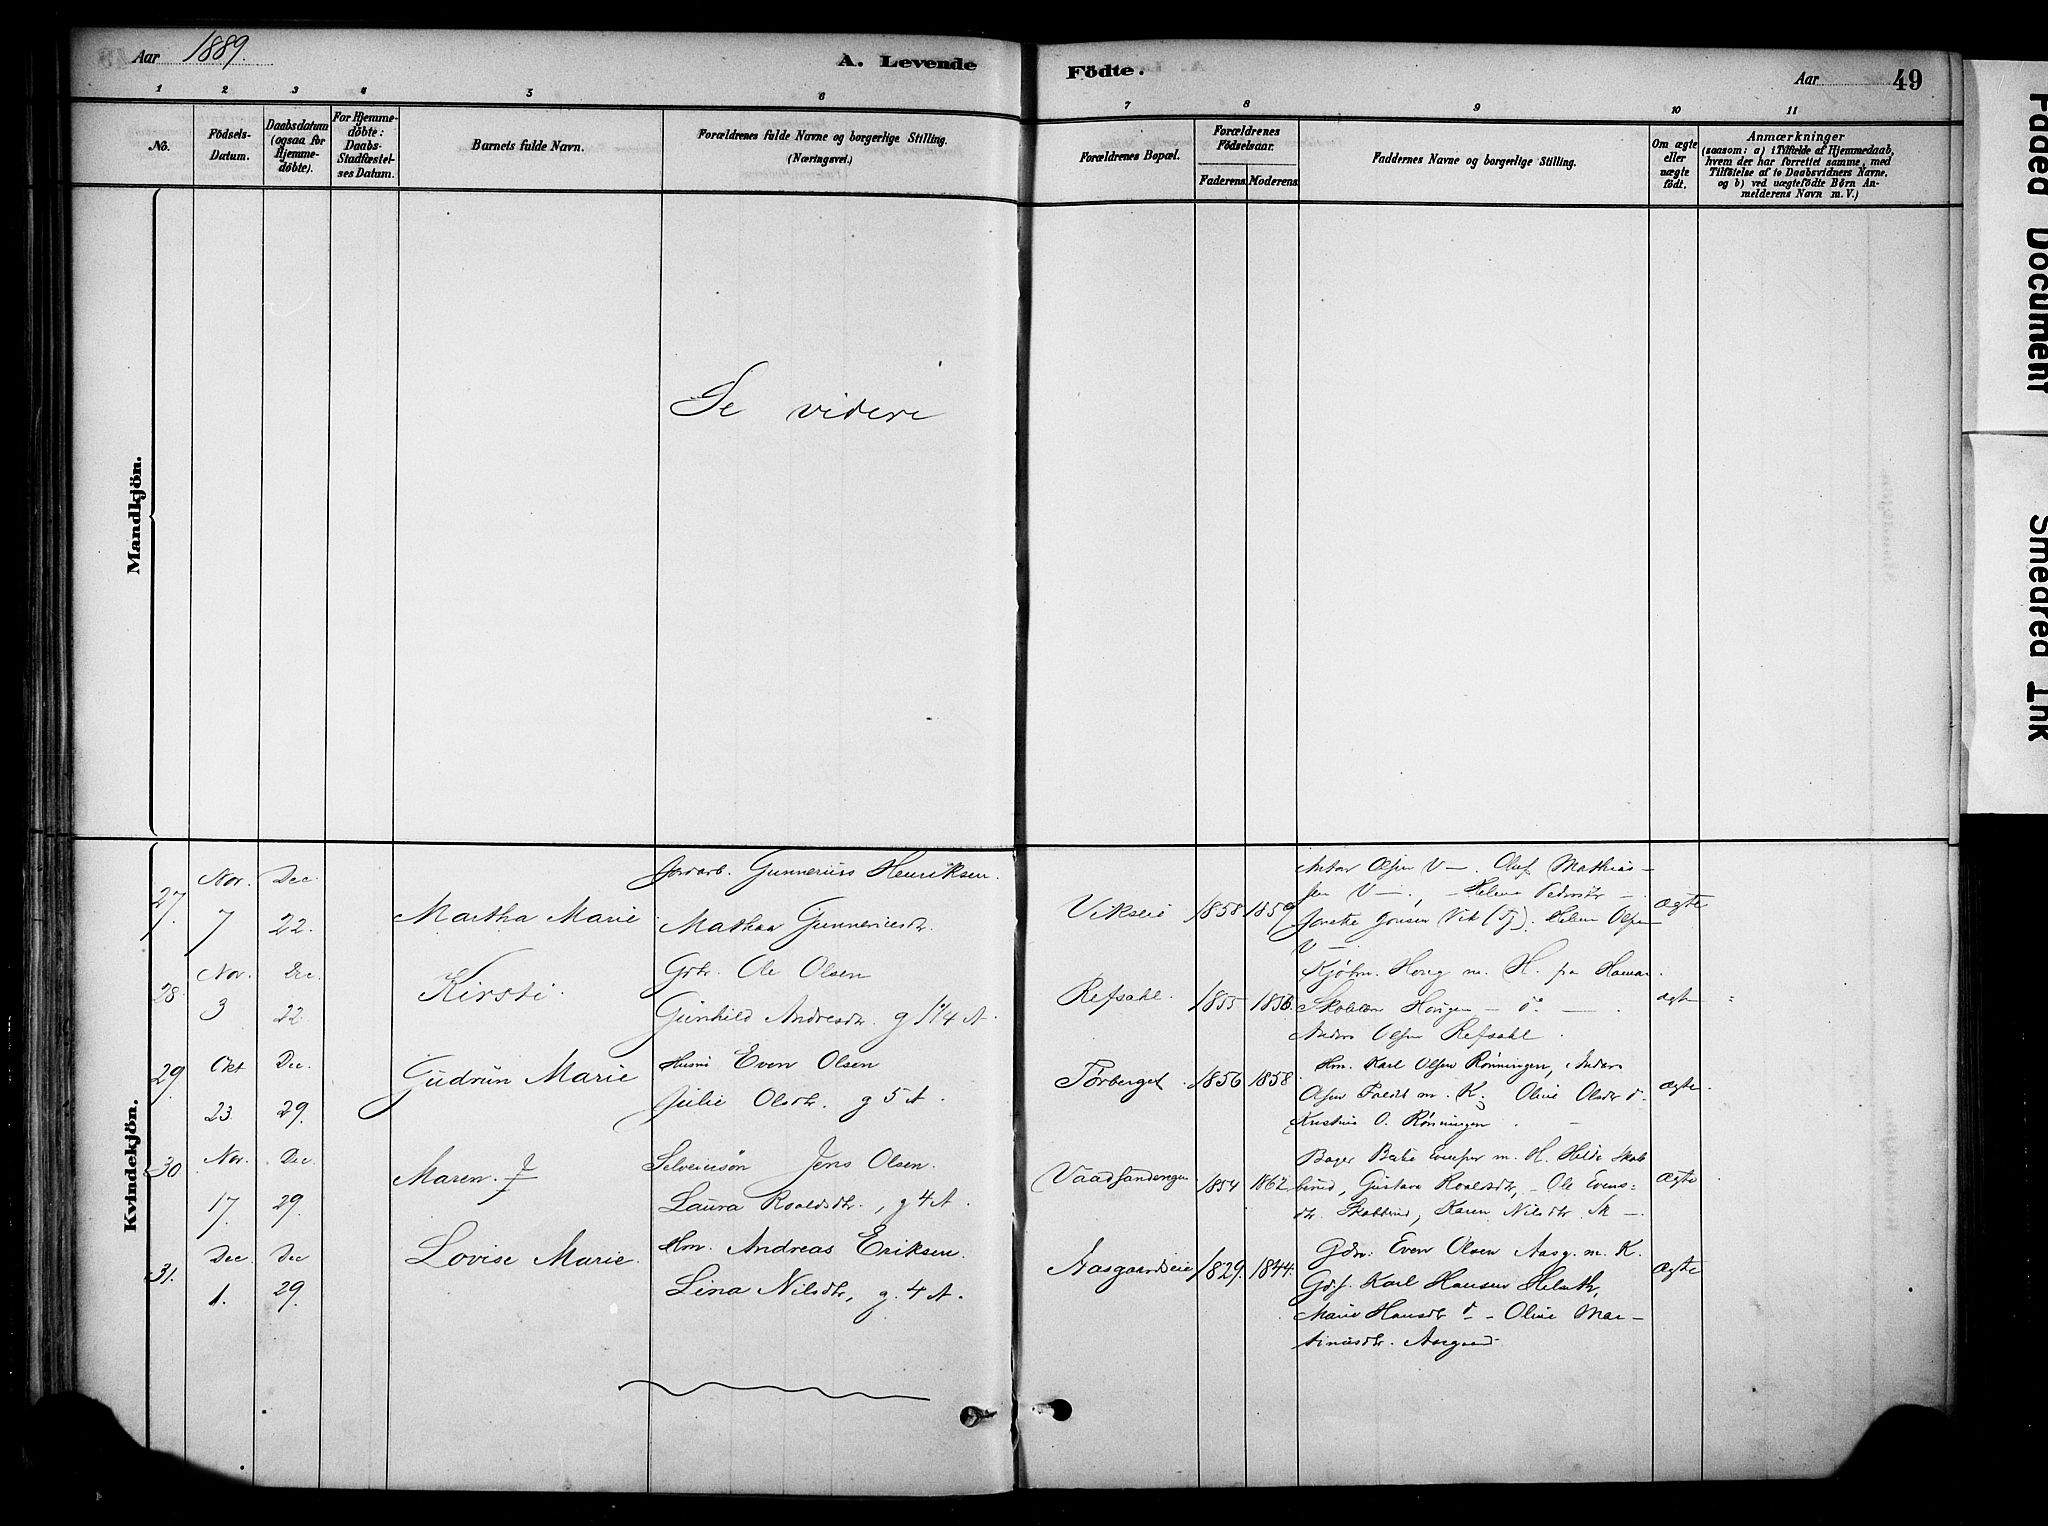 Aar 1889.
A. Levende
Födte.
Aar
49
1 2 3 4 5 6
7 8 9 10 11
No.
Födsels-
Datum.
Daabsdatum
(ogsaa for
Hjemme-
döbte).
For Hjemme-
döbte:
Daabs-
Stadfæstel-
ses Datum.
Barnets fulde Navn.
Forældrenes fulde Navne og borgerlige Stilling.
(Næringsvei.)
Forældrenes Bopæl.
Forældrenes
Födselsaar.
Faderens. Moderens.
Faddernes Navne og borgerlige Stilling.
Om ægte
eller
uægte
födt.
Anmærkninger
(saasom: a) i Tilfælde af Hjemmedaab,
hvem der har forrettet samme, med
Tilföielse af to Daabsvidners Navne,
og b) ved uægtefödte Börn An-
melderens Navn m. V.)
Mandkjön.
Se videre
Kvindekjön.
27.
Nov.
7
Dec.
22.
Martha Marie
Jordarb. Gunnerius Henriksen.
Mathea Gunneriusdr.
Vikseie 1858 1859
Anton Olsen V —. Oluf Mathias-
sen V —. — Helene Pedersdtr —
Jonsen Vik (Tj). Helene Olsen
V —.
Ægte
28.
Nov.
3
Dec.
22.
Kirsti.
Gbr. Ole Olsen
Gunhild Andresdtr. g 1 4 A.
Refsahl. 1855 1856.
Kjøbm. Houg m. H. fra Hamar.
Hougen — do —
Anders Olsen Refsahl.
ægte
29.
Okt.
23.
Dec.
29.
Gudrun Marie
Husm Even Olsen
Julie Olsdtr. g 5 A.
Tørberget. 1856 1858.
Hm. Karl Olsen Rønningen, Anders
Olsen m. K. Oline Olsdtr do.
Kristine O. Rønningen
ægte.
30
Nov.
17.
Dec.
29.
Maren. †
Selveiersøn Jens Olsen.
Laura Roaldsdtr., g 4 A.
Vaadsandengen 1854 1862
Bager Evensen m. H. Hilda Skab-
berud, Gustava Roaldsdtr, — Ole Evens-
dtr. Skabberud, Karen Nilsdtr. Sk —.
Ægte
31.
Dec.
1.
Dec
29.
Lovise Marie.
Hm. Andreas Eriksen.
Lina Nilsdtr, g. 4 A.
Aasgaardseie 1829. 1844.
Gbr. Even Olsen Aasg. m. K.
Karl Hansen
Marie Hansdtr do — Oline Mar-
tinusdtr. Aasgaard
Ægte
Faded Document
Smeared Ink